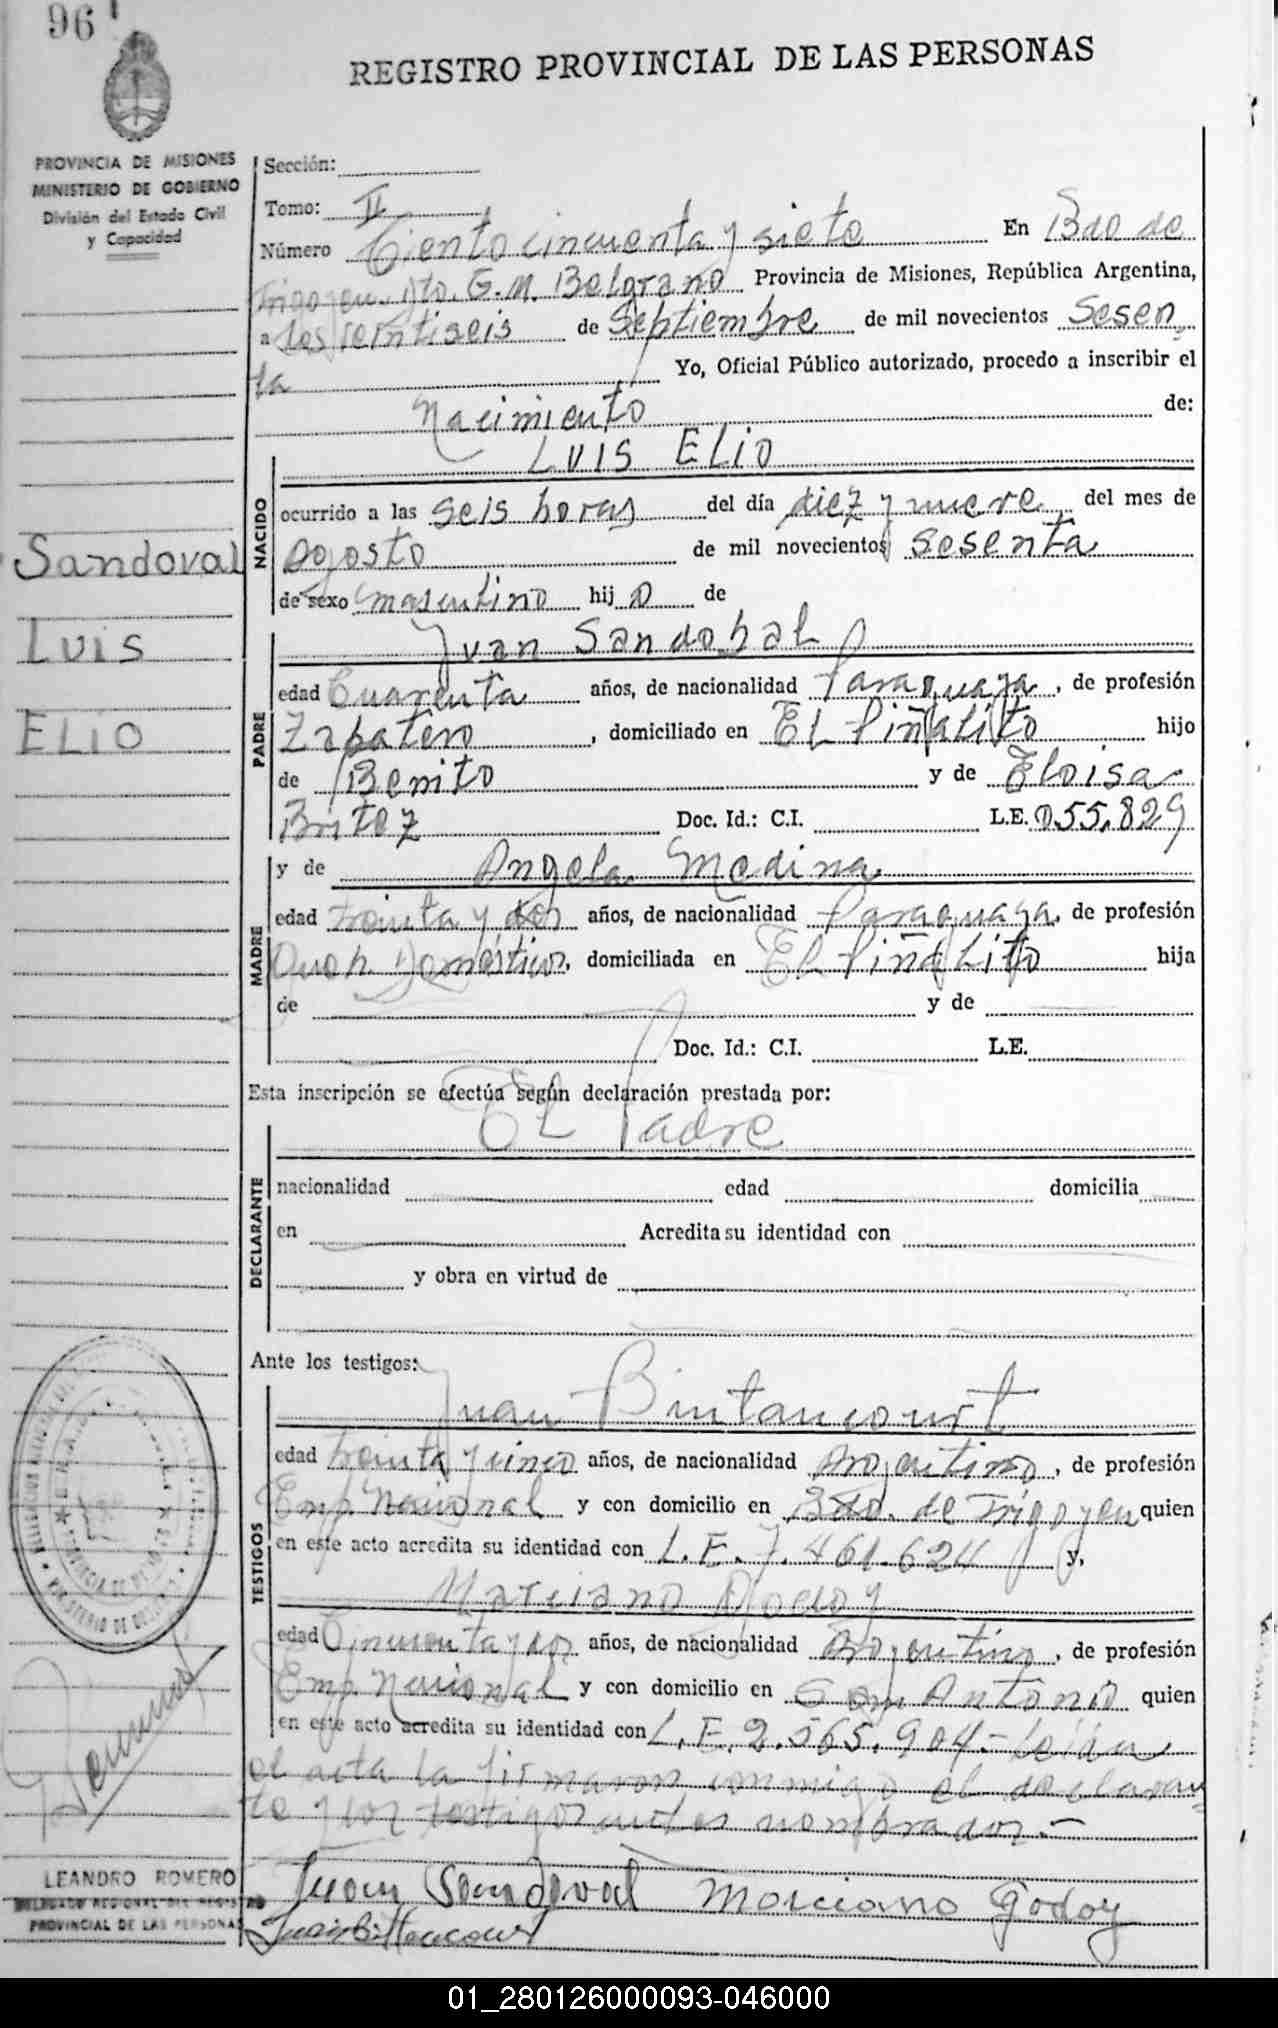 96
REGISTRO PROVINCIAL DE LAS PERSONAS
PROVINCIA DE MISIONES
MINISTERIO DE GOBIERNO
División del Estado Civil
y Capacidad
Sandoval
Luis
ELIO
Sección:
Tomo: II
Número Ciento cincuenta y siete En Bdo de
Irigoyen. Dto. G.M. Belgrano Provincia de Misiones, República Argentina,
a los veintiseis de Septiembre de mil novecientos Sesen
ta Yo, Oficial Público autorizado, procedo a inscribir el
Nacimiento de:
LUIS ELIO
NACIDO
ocurrido a las seis horas del día diez y nueve del mes de
Agosto de mil novecientos sesenta
de sexo masculino hijo de
Juan Sandobal
PADRE
edad Cuarenta años, de nacionalidad Paraguaya, de profesión
Zapatero, domiciliado en El Piñalito hijo
de Benito y de Eloisa
Britez Doc. Id.: C.I. L.E. 055.829
MADRE
y de Angela Medina
edad treinta y dos años, de nacionalidad Paraguaya, de profesión
Queh. Domésticos, domiciliada en El Piñalito hija
de y de
Doc. Id.: C.I. L.E.
Esta inscripción se efectúa según declaración prestada por:
El Padre
DECLARANTE
nacionalidad edad domicilia
en Acredita su identidad con
y obra en virtud de
Ante los testigos:
Juan Bintancourt
TESTIGOS
edad treinta y cinco años, de nacionalidad Argentino, de profesión
Emp. Nacional y con domicilio en Bdo. de Irigoyen quien
en este acto acredita su identidad con L.E. 7.461.624 y,
Marciano Godoy
edad Cincuenta y dos años, de nacionalidad Argentino, de profesión
Emp. Nacional y con domicilio en San Antonio quien
en este acto acredita su identidad con L.E. 2.565.904.- Leida
el acta la firmaron conmigo el declaran
te y los testigos antes nombrados.-
LEANDRO ROMERO
DELEGADO REGIONAL DEL REGISTRO
PROVINCIAL DE LAS PERSONAS
Juan Sandoval Marciano Godoy
Juan Bittancourt
01_280126000093-046000